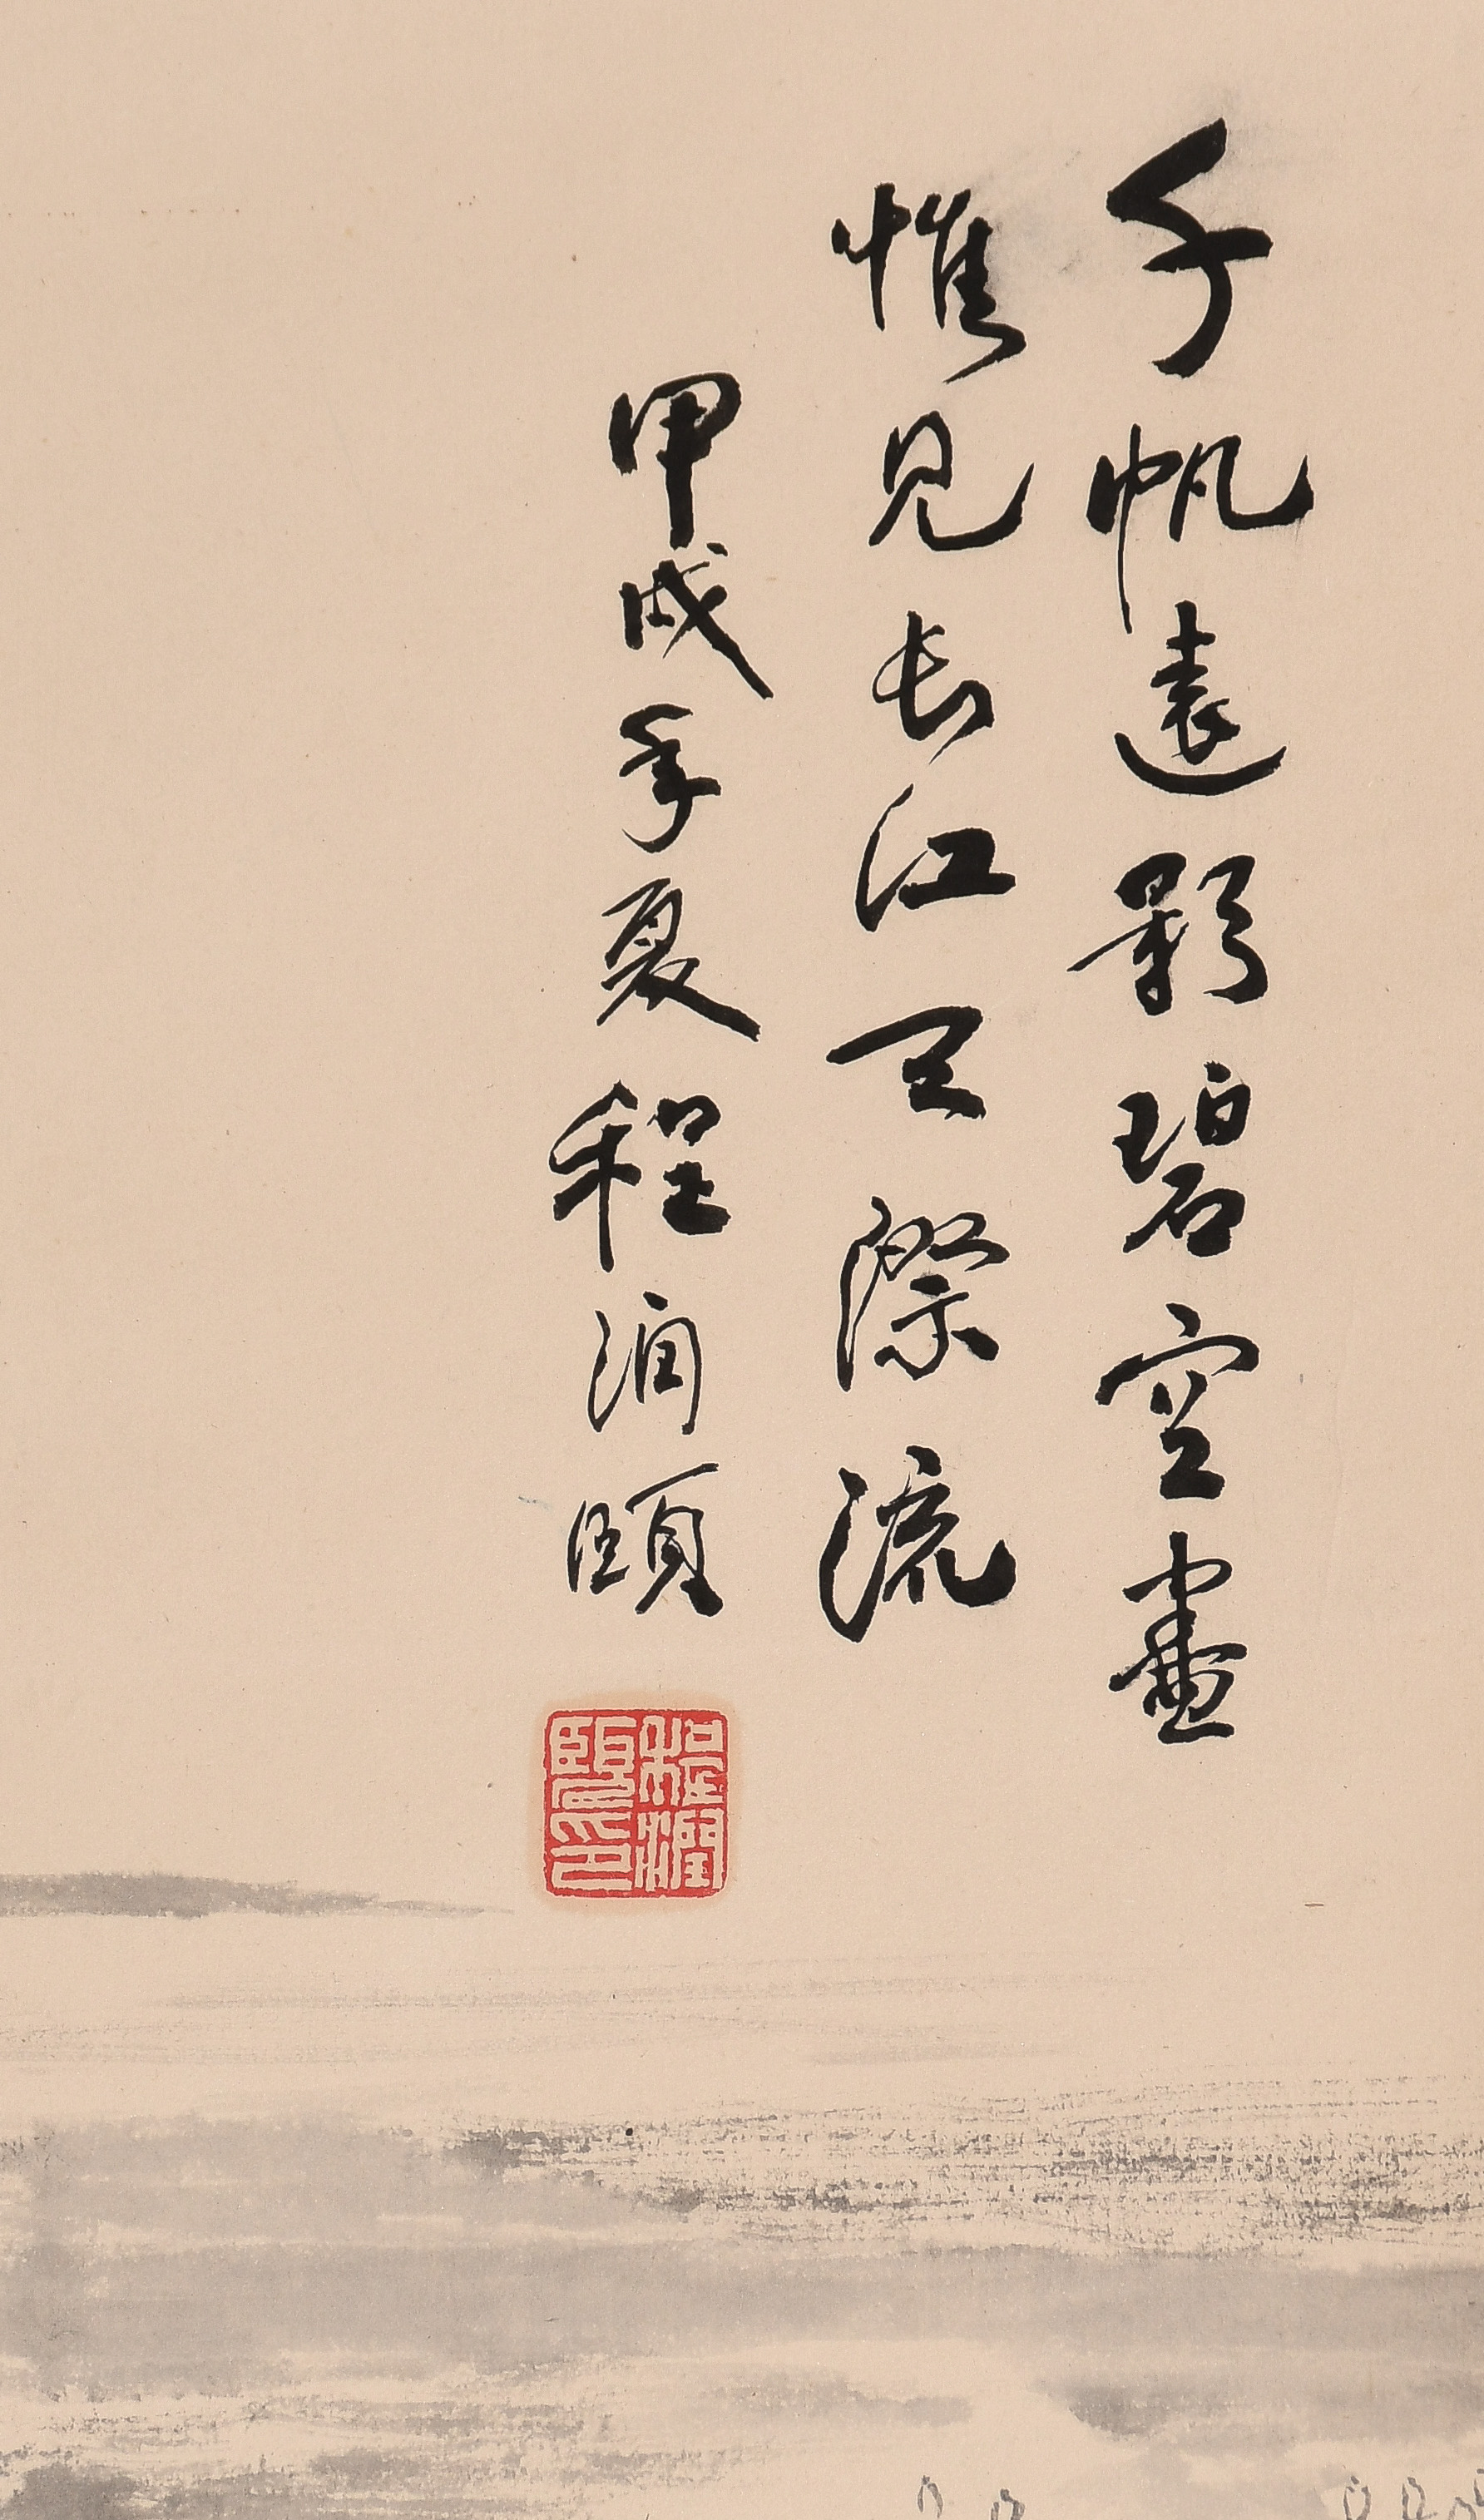 千帆遠影碧空盡
惟見长江天際流
甲戌年夏程润頤
程潤頤印